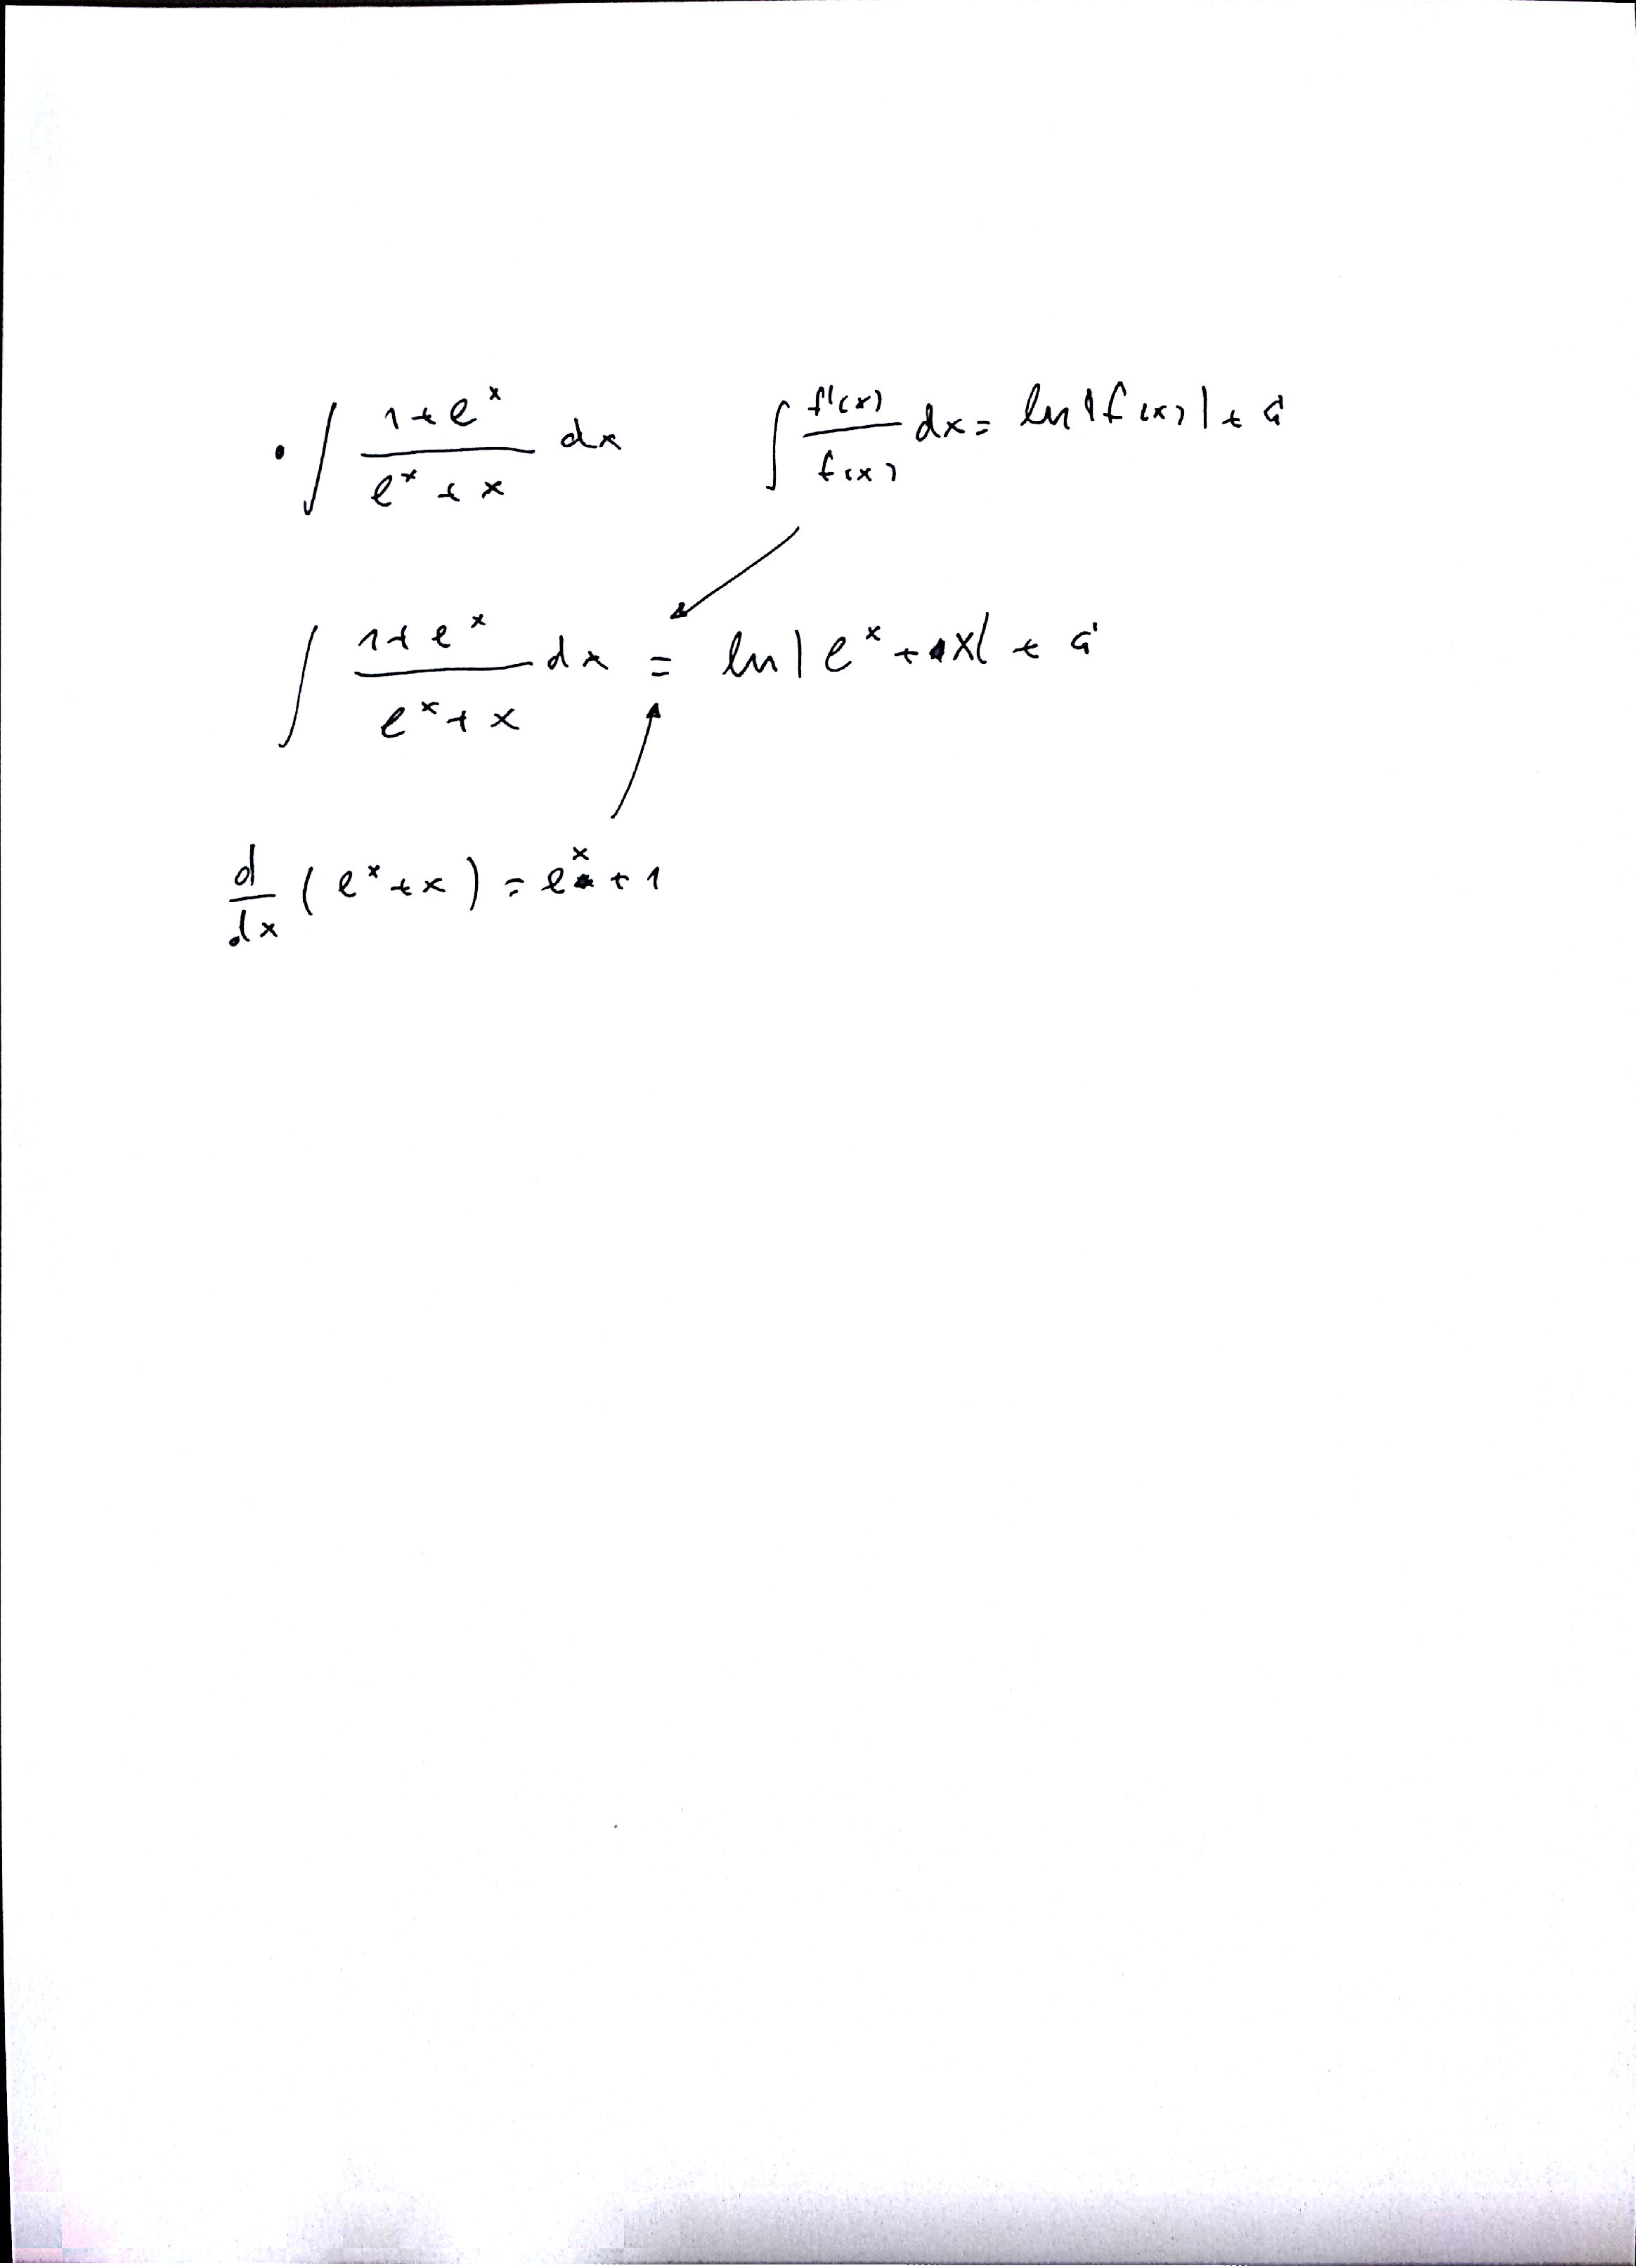 • ∫ (1+e^x)/(e^x+x) dx    ∫ f'(x)/f(x) dx = ln|f(x)| + C
∫ (1+e^x)/(e^x+x) dx = ln|e^x+x| + C
d/dx (e^x+x) = e^x+1